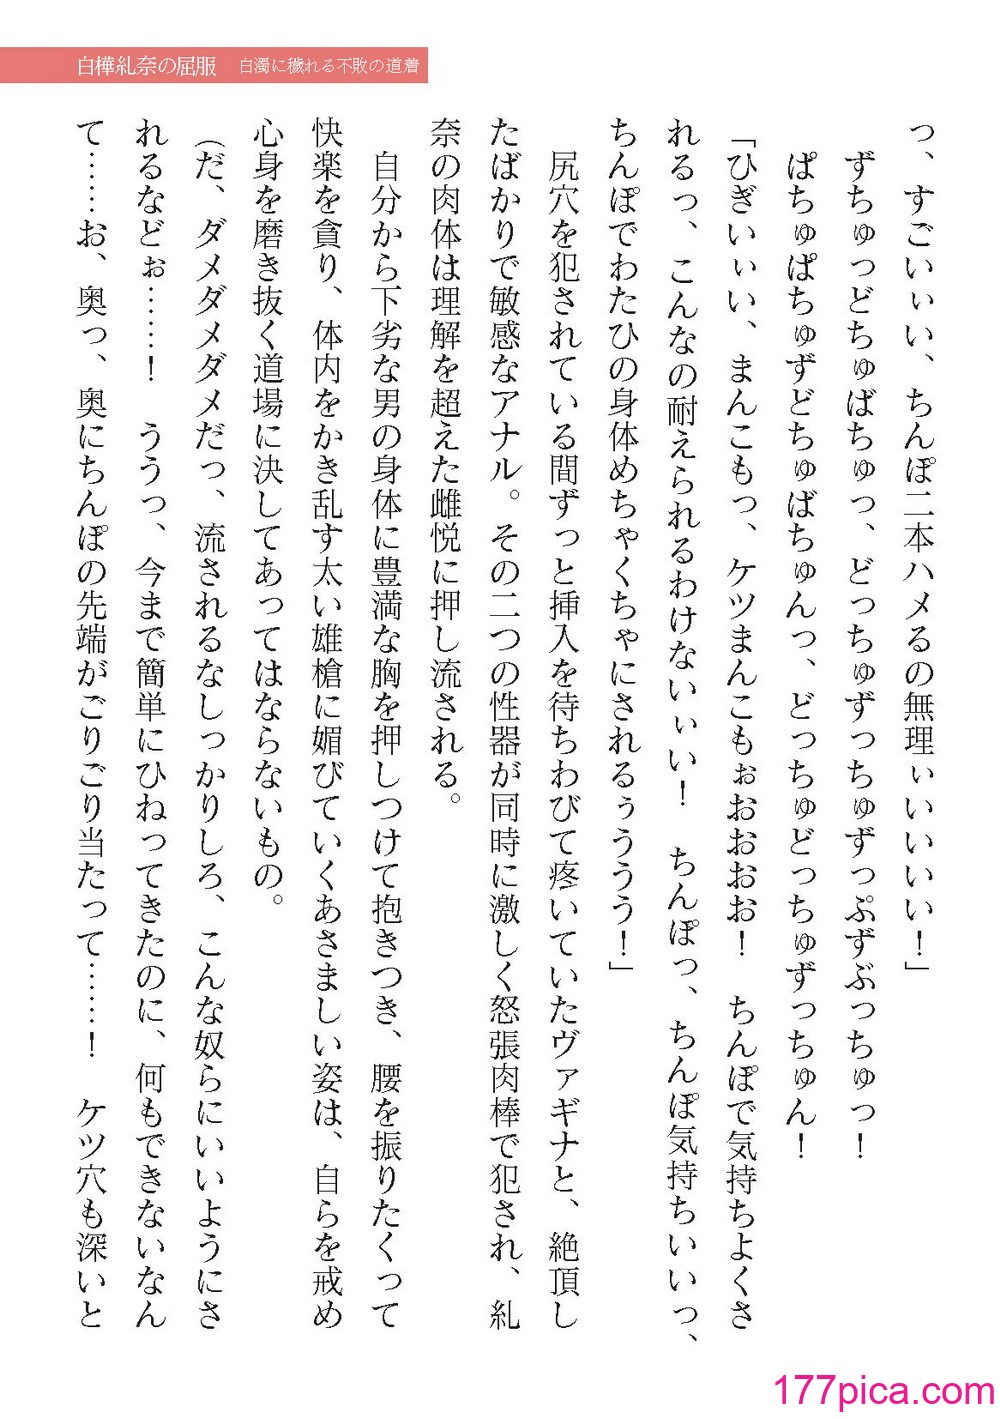 白樺糺奈の屈服　白濁に穢れる不敗の道着
っ、すごいぃい、ちんぽ二本ハメるの無理ぃいいいい！」
ずちゅっどちゅばちゅっ、どっちゅずっちゅずっぷずぶっちゅっ！
ぱちゅぱちゅずどちゅばちゅんっ、どっちゅどっちゅずっちゅん！
「ひぎいぃい、まんこもっ、ケツまんこもぉおおおお！　ちんぽで気持ちよくさ
れるっ、こんなの耐えられるわけないぃい！　ちんぽっ、ちんぽ気持ちいいっ、
ちんぽでわたひの身体めちゃくちゃにされるぅううう！」
尻穴を犯されている間ずっと挿入を待ちわびて疼いていたヴァギナと、絶頂し
たばかりで敏感なアナル。その二つの性器が同時に激しく怒張肉棒で犯され、糺
奈の肉体は理解を超えた雌悦に押し流される。
自分から下劣な男の身体に豊満な胸を押しつけて抱きつき、腰を振りたくって
快楽を貪り、体内をかき乱す太い雄槍に媚びていくあさましい姿は、自らを戒め
心身を磨き抜く道場に決してあってはならないもの。
（だ、ダメダメダメだっ、流されるなしっかりしろ、こんな奴らにいいようにさ
れるなどぉ……！　ううっ、今まで簡単にひねってきたのに、何もできないなん
て……お、奥っ、奥にちんぽの先端がごりごり当たって……！　ケツ穴も深いと
177pica.com